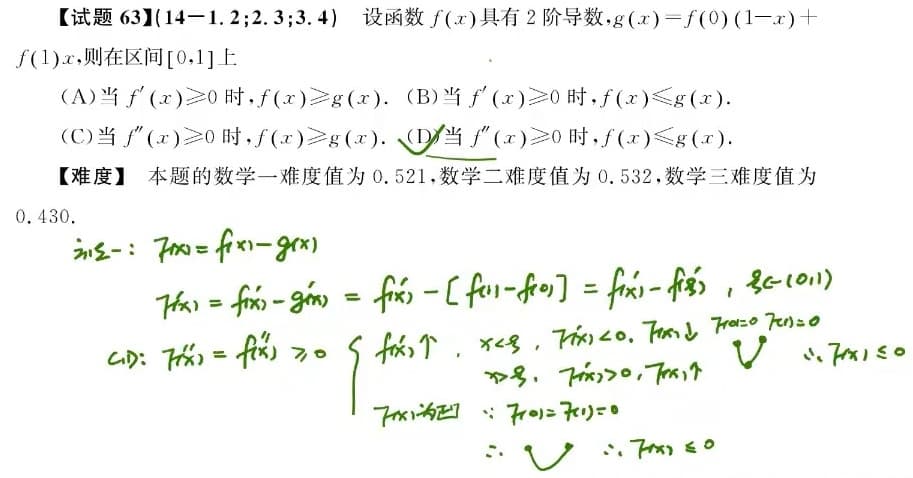 【试题 63】(14-1.2;2.3;3.4) 设函数 f(x)具有 2 阶导数,g(x)=f(0)(1-x)+
f(1)x,则在区间[0,1]上
(A)当 f′(x)≥0 时,f(x)≥g(x). (B)当 f′(x)≥0 时,f(x)≤g(x).
(C)当 f″(x)≥0 时,f(x)≥g(x). (D)当 f″(x)≥0 时,f(x)≤g(x).
【难度】 本题的数学一难度值为 0.521,数学二难度值为 0.532,数学三难度值为
0.430.
法一: F(x)=f(x)-g(x)
F′(x)=f′(x)-g′(x)=f′(x)-[f(1)-f(0)]=f′(x)-f′(ξ), ξ∈(0,1)
C,D: F″(x)=f″(x)≥0 { f′(x)↑, x<ξ, F′(x)<0, F(x)↓ F(0)=0 F(1)=0
x>ξ, F′(x)>0, F(x)↑ ∴F(x)≤0
F(x)为凹 ∵ F(0)=F(1)=0
∴ ∴F(x)≤0